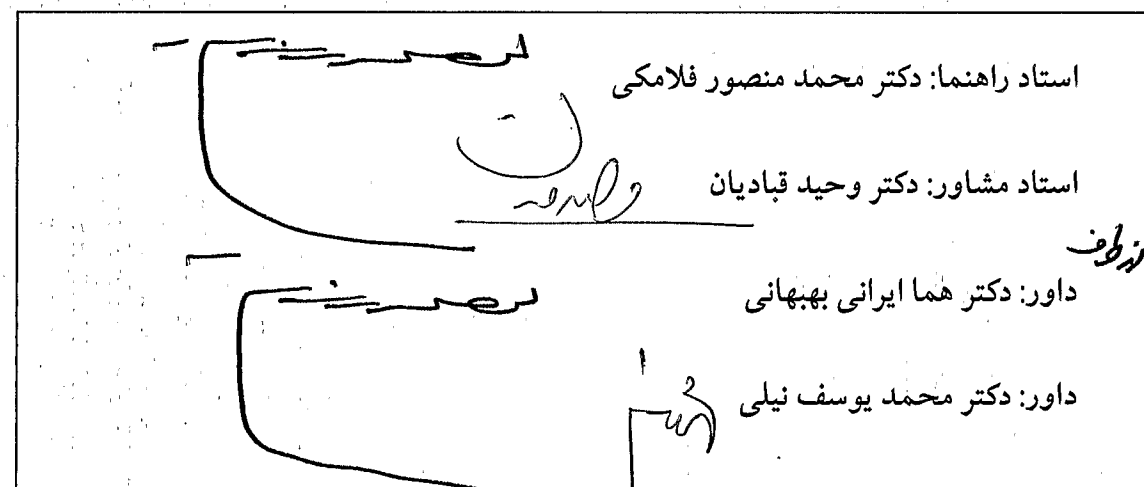 استاد راهنما: دکتر محمد منصور فلامکی
استاد مشاور: دکتر وحید قبادیان
از طرف
داور: دکتر هما ایرانی بهبهانی
داور: دکتر محمد یوسف نیلی